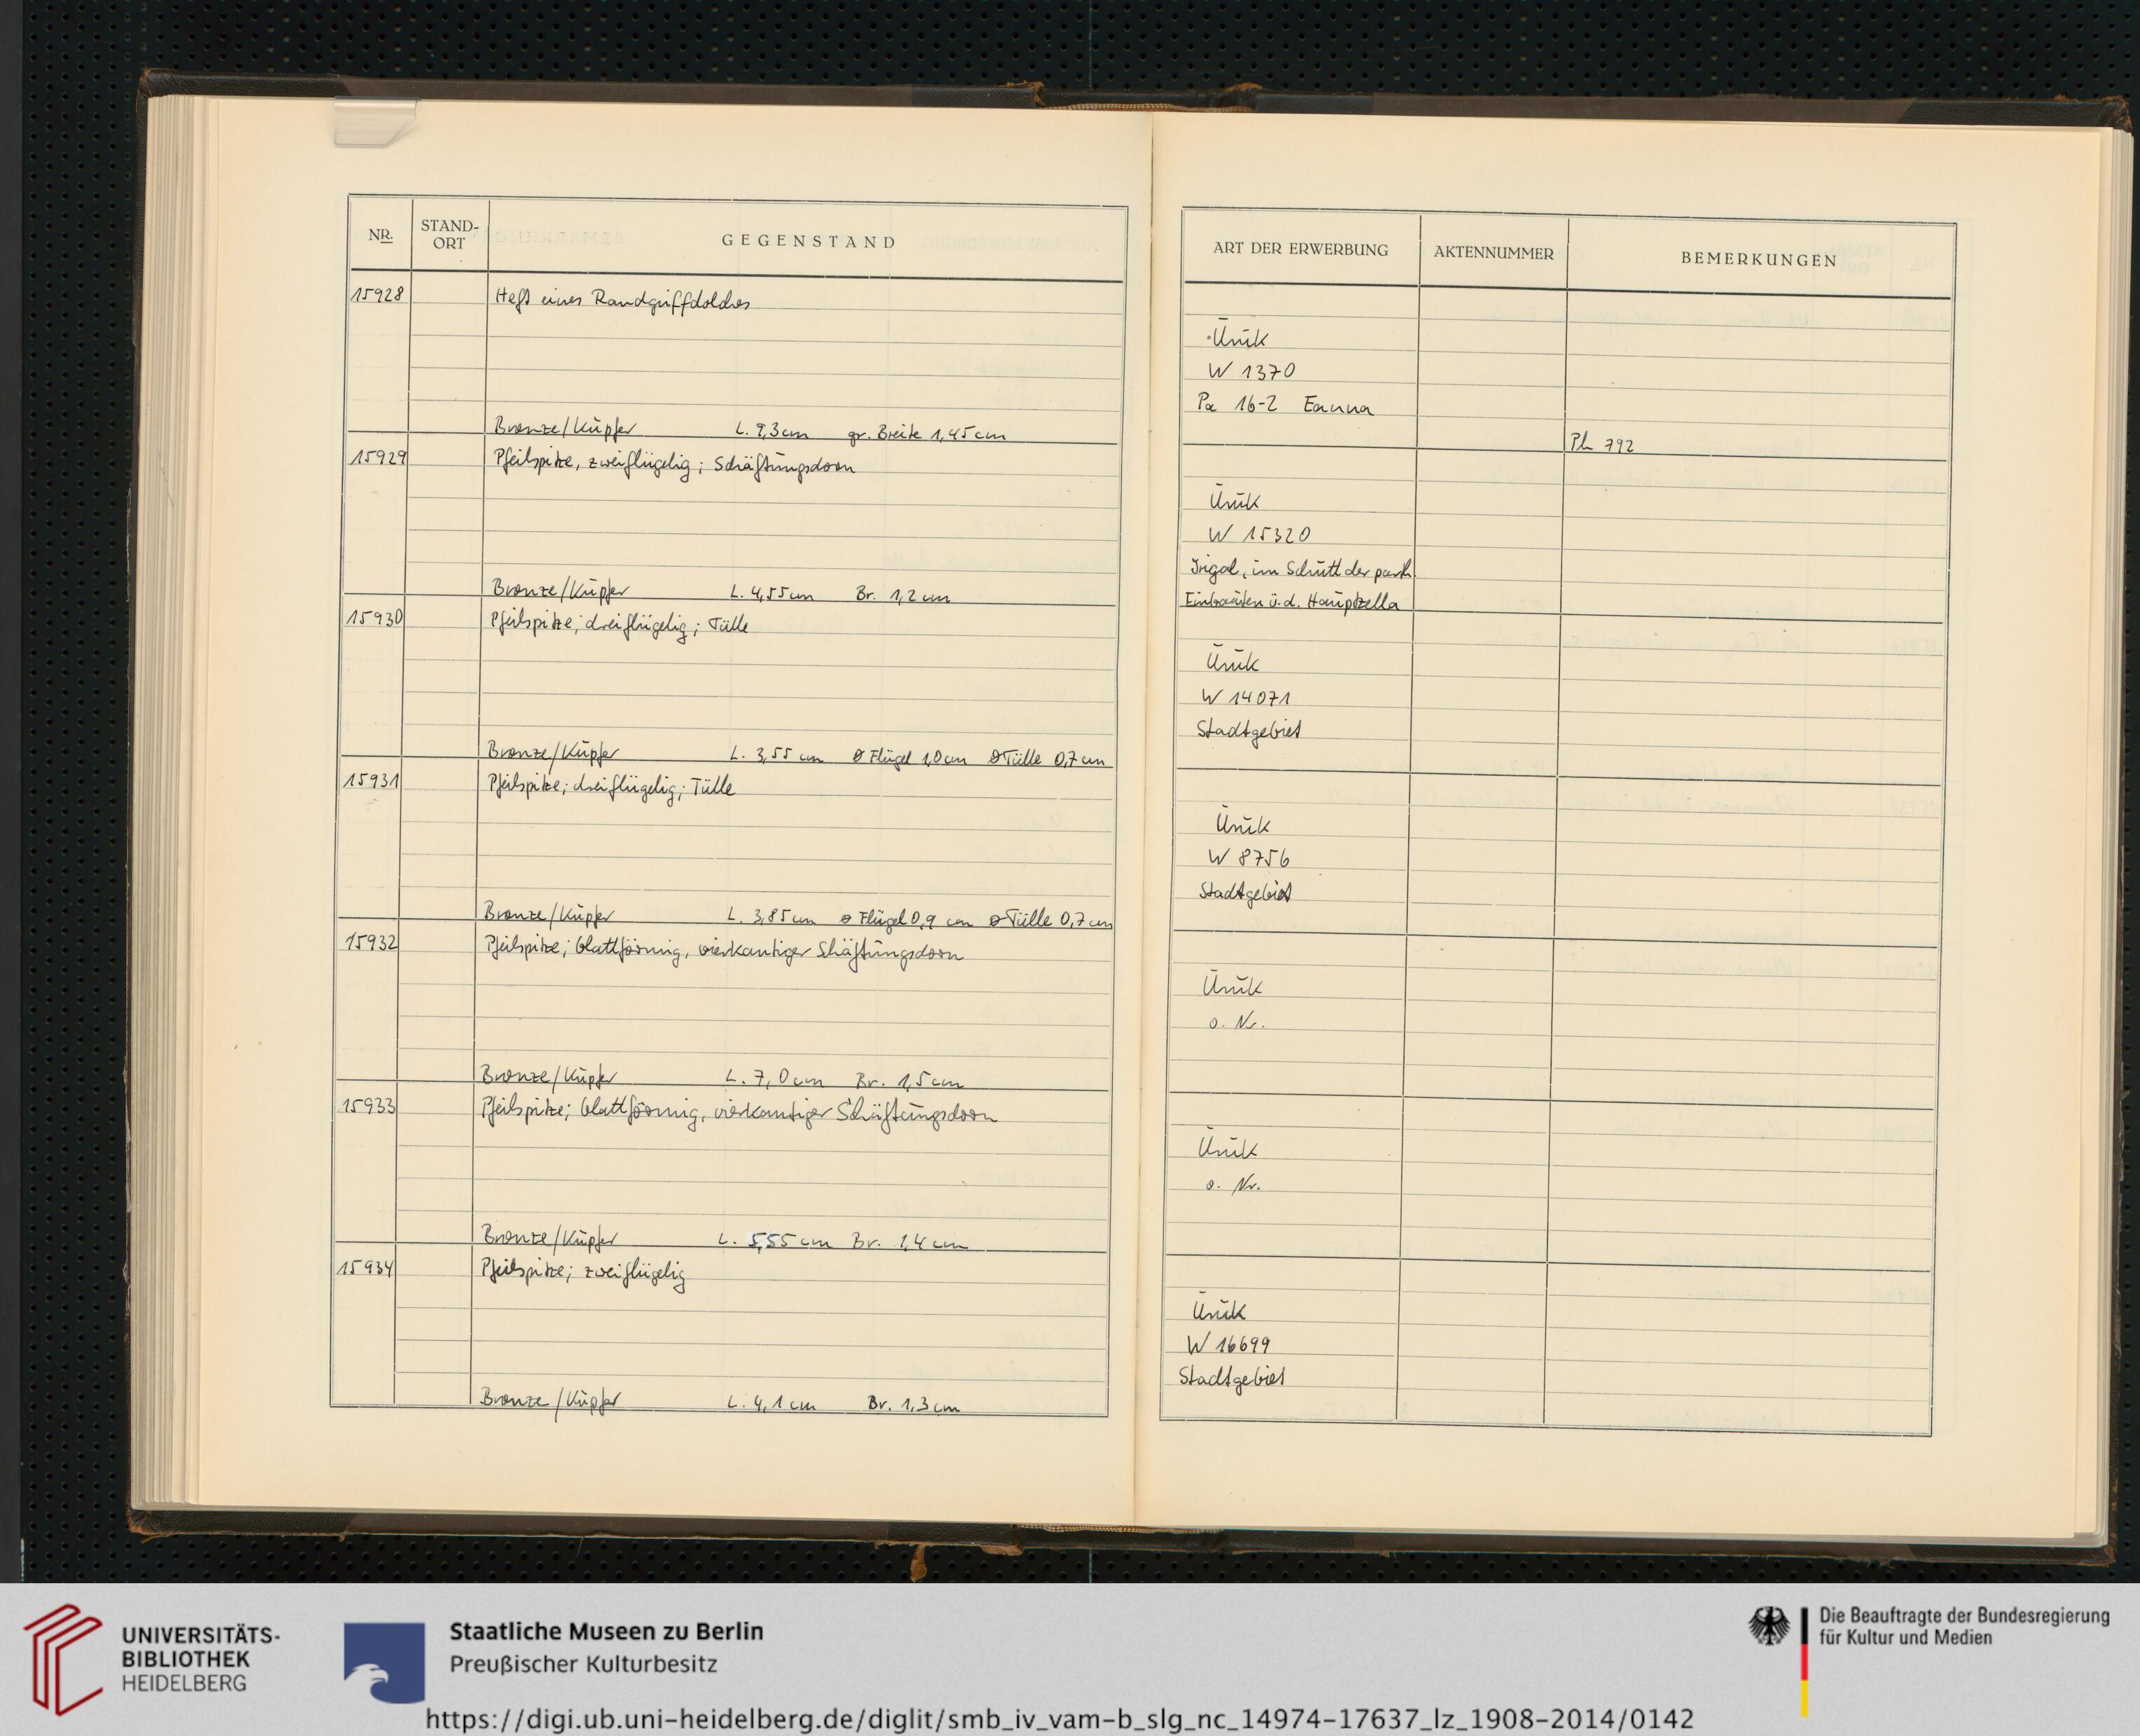 NR.
STAND-
ORT
GEGENSTAND
15928
Heft eines Randgriffdolches
Bronze/Kupfer L. 9,3 cm gr. Breite 1,45 cm
15929
Pfeilspitze, zweiflügelig; Schäftungsdorn
Bronze/Kupfer L. 4,55 cm Br. 1,2 cm
15930
Pfeilspitze; dreiflügelig; Tülle
Bronze/Kupfer L. 3,55 cm ø Flügel 1,0 cm ø Tülle 0,7 cm
15931
Pfeilspitze; dreiflügelig; Tülle
Bronze/Kupfer L. 3,85 cm ø Flügel 0,9 cm ø Tülle 0,7 cm
15932
Pfeilspitze; blattförmig, vierkantiger Schäftungsdorn
Bronze/Kupfer L. 7,0 cm Br. 1,5 cm
15933
Pfeilspitze; blattförmig, vierkantiger Schäftungsdorn
Bronze/Kupfer L. 5,55 cm Br. 1,4 cm
15934
Pfeilspitze; zweiflügelig
Bronze/Kupfer L. 4,1 cm Br. 1,3 cm
ART DER ERWERBUNG
AKTENNUMMER
BEMERKUNGEN
Uruk
W 1370
Pa 16-2 Eanna
Ph 792
Uruk
W 15320
Irigal, im Schutt der parth.
Einbauten ü. d. Hauptzella
Uruk
W 14071
Stadtgebiet
Uruk
W 8756
Stadtgebiet
Uruk
o. Nr.
Uruk
o. Nr.
Uruk
W 16699
Stadtgebiet
UNIVERSITÄTS-
BIBLIOTHEK
HEIDELBERG
Staatliche Museen zu Berlin
Preußischer Kulturbesitz
Die Beauftragte der Bundesregierung
für Kultur und Medien
https://digi.ub.uni-heidelberg.de/diglit/smb_iv_vam-b_slg_nc_14974-17637_lz_1908-2014/0142